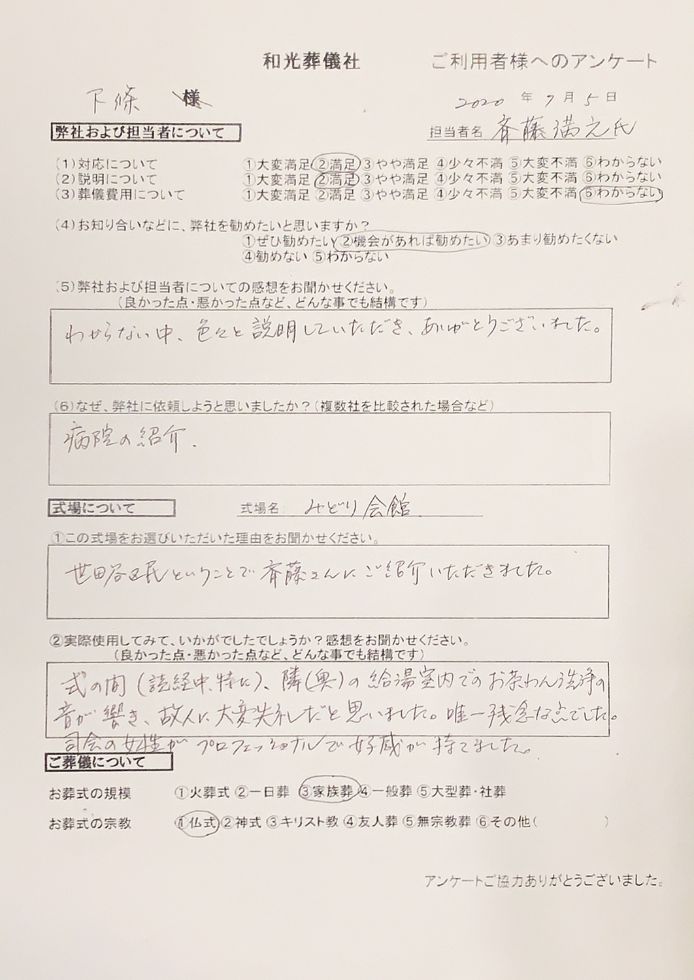 和光葬儀社 ご利用者様へのアンケート
下條 様 2020 年 7 月 5 日
弊社および担当者について 担当者名 斉藤満之氏
(1)対応について ①大変満足 ②満足 ③やや満足 ④少々不満 ⑤大変不満 ⑥わからない
(2)説明について ①大変満足 ②満足 ③やや満足 ④少々不満 ⑤大変不満 ⑥わからない
(3)葬儀費用について ①大変満足 ②満足 ③やや満足 ④少々不満 ⑤大変不満 ⑥わからない
(4)お知り合いなどに、弊社を勧めたいと思いますか？
①ぜひ勧めたい ②機会があれば勧めたい ③あまり勧めたくない
④勧めない ⑤わからない
(5)弊社および担当者についての感想をお聞かせください。
(良かった点・悪かった点など、どんな事でも結構です)
わからない中、色々と説明していただき、ありがとうございました。
(6)なぜ、弊社に依頼しようと思いましたか？(複数社を比較された場合など)
病院の紹介.
式場について 式場名 みどり会館
①この式場をお選びいただいた理由をお聞かせください。
世田谷区民ということで斉藤さんにご紹介いただきました。
②実際使用してみて、いかがでしたでしょうか？感想をお聞かせください。
(良かった点・悪かった点など、どんな事でも結構です)
式の間(読経中、特に)、隣(奥)の給湯室内でのお茶わん洗浄の
音が響き、故人に大変失礼だと思いました。唯一残念な点でした。
司会の女性がプロフェッショナルで好感が持てました。
ご葬儀について
お葬式の規模 ①火葬式 ②一日葬 ③家族葬 ④一般葬 ⑤大型葬・社葬
お葬式の宗教 ①仏式 ②神式 ③キリスト教 ④友人葬 ⑤無宗教葬 ⑥その他( )
アンケートご協力ありがとうございました。